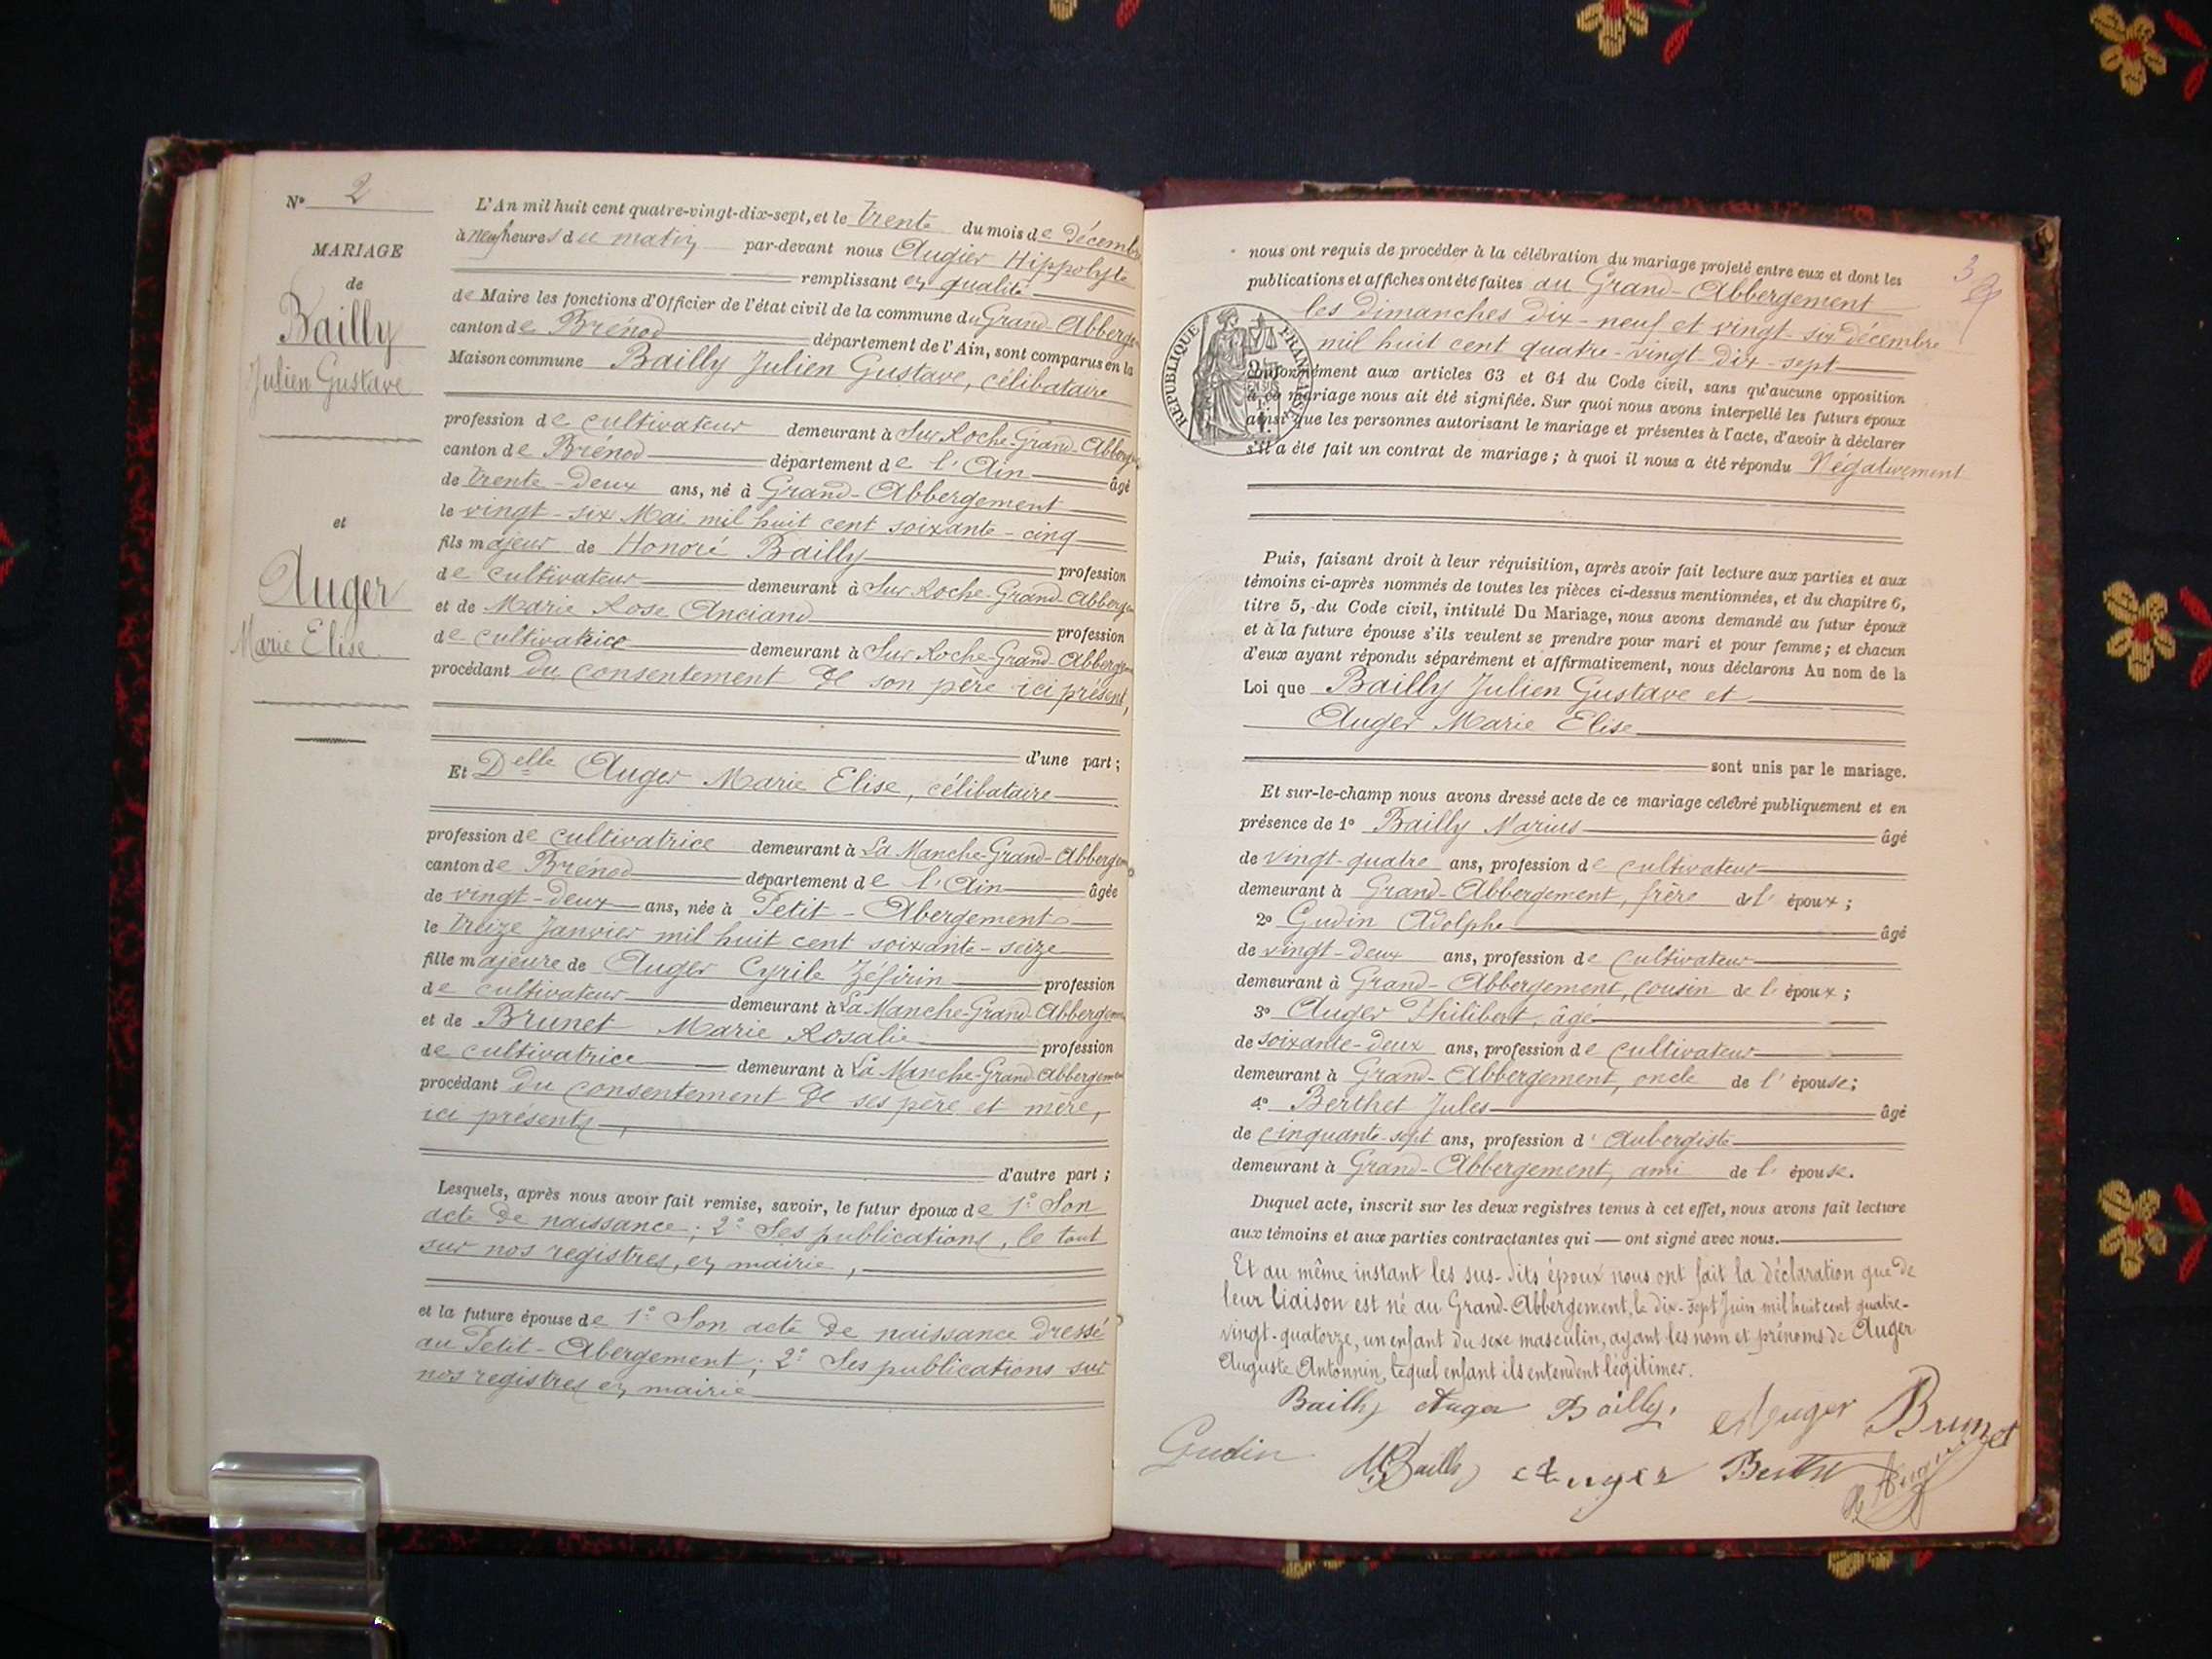 N° 2
MARIAGE
de
Bailly
Julien Gustave
et
Auger
Marie Elise
L'An mil huit cent quatre-vingt-dix-sept, et le trente du mois de Décembre
à neuf heures du matin par-devant nous Augier Hippolyte
remplissant en qualité
de Maire les fonctions d'Officier de l'état civil de la commune du Grand-Abberge
canton de Brénod département de l'Ain, sont comparus en la
Maison commune Bailly Julien Gustave, célibataire
profession de cultivateur demeurant à Sur Roche-Grand-Abberge
canton de Brénod département de l'Ain âgé
de trente-deux ans, né à Grand-Abbergement
le vingt-six Mai mil huit cent soixante-cinq
fils majeur de Honoré Bailly profession
de cultivateur demeurant à Sur Roche-Grand-Abberge
et de Marie Rose Anciand profession
de cultivatrice demeurant à Sur Roche-Grand-Abbergem
procédant du consentement de son père ici présent,
d'une part ;
Et Delle Auger Marie Elise, célibataire
profession de cultivatrice demeurant à La Manche-Grand-Abbergem
canton de Brénod département de l'Ain âgée
de vingt-deux ans, née à Petit-Abergement
le treize Janvier mil huit cent soixante-seize
fille majeure de Auger Cyrile Zéfirin profession
de cultivateur demeurant à La Manche-Grand-Abbergem
et de Brunet Marie Rosalie profession
de cultivatrice demeurant à La Manche-Grand-Abbergem
procédant du consentement de ses père et mère,
ici présents,
d'autre part ;
Lesquels, après nous avoir fait remise, savoir, le futur époux de 1° Son
acte de naissance ; 2° Ses publications, le tout
sur nos registres, en mairie,
et la future épouse de 1° Son acte de naissance dressé
au Petit-Abergement ; 2° Ses publications sur
nos registres en mairie
3
nous ont requis de procéder à la célébration du mariage projeté entre eux et dont les
publications et affiches ont été faites au Grand-Abbergement
les dimanches dix-neuf et vingt-six décembre
mil huit cent quatre-vingt-dix-sept
REPUBLIQUE FRANÇAISE
Conformément aux articles 63 et 64 du Code civil, sans qu'aucune opposition
à ce mariage nous ait été signifiée. Sur quoi nous avons interpellé les futurs époux
ainsi que les personnes autorisant le mariage et présentes à l'acte, d'avoir à déclarer
s'il a été fait un contrat de mariage ; à quoi il nous a été répondu Négativement
Puis, faisant droit à leur réquisition, après avoir fait lecture aux parties et aux
témoins ci-après nommés de toutes les pièces ci-dessus mentionnées, et du chapitre 6,
titre 5, du Code civil, intitulé Du Mariage, nous avons demandé au futur époux
et à la future épouse s'ils veulent se prendre pour mari et pour femme ; et chacun
d'eux ayant répondu séparément et affirmativement, nous déclarons Au nom de la
Loi que Bailly Julien Gustave et
Auger Marie Elise
sont unis par le mariage.
Et sur-le-champ nous avons dressé acte de ce mariage célébré publiquement et en
présence de 1° Bailly Marius âgé
de vingt-quatre ans, profession de cultivateur
demeurant à Grand-Abbergement, frère de l' époux ;
2° Gudin Adolphe âgé
de vingt-deux ans, profession de cultivateur
demeurant à Grand-Abbergement, cousin de l' époux ;
3° Auger Philibert, âgé
de soixante-deux ans, profession de cultivateur
demeurant à Grand-Abbergement, oncle de l' épouse ;
4° Berthet Jules âgé
de cinquante-sept ans, profession d' Aubergiste
demeurant à Grand-Abbergement, ami de l' épouse.
Duquel acte, inscrit sur les deux registres tenus à cet effet, nous avons fait lecture
aux témoins et aux parties contractantes qui — ont signé avec nous.
Et au même instant les sus-dits époux nous ont fait la déclaration que de
leur liaison est né au Grand-Abbergement, le dix-sept Juin mil huit cent quatre-
vingt-quatorze, un enfant du sexe masculin, ayant les nom et prénoms de Auger
Auguste Antonnin, lequel enfant ils entendent légitimer.
Bailly Auger Bailly. Auger Brunet
Gudin M Bailly Auger